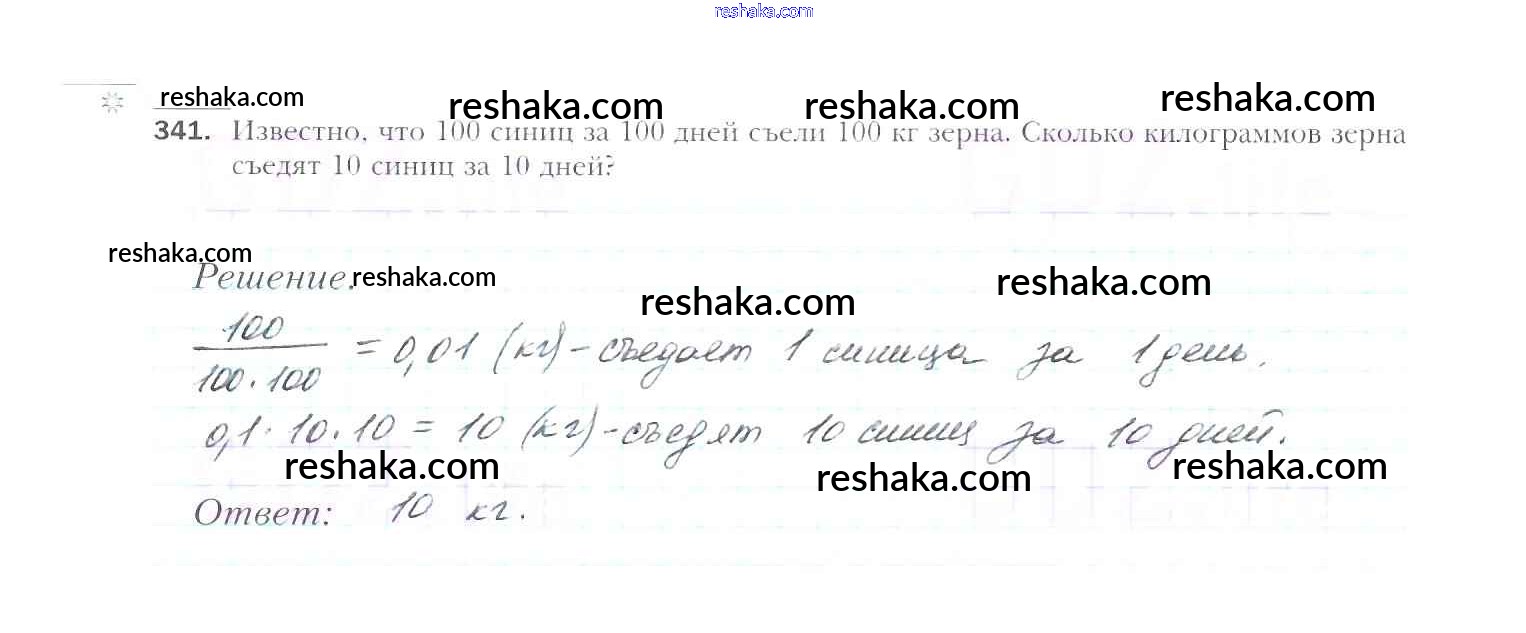 reshaka.com
reshaka.com reshaka.com reshaka.com reshaka.com
341. Известно, что 100 синиц за 100 дней съели 100 кг зерна. Сколько килограммов зерна
съедят 10 синиц за 10 дней?
reshaka.com
Решение. reshaka.com reshaka.com reshaka.com
100
100 · 100 = 0,01 (кг) - съедает 1 синица за 1 день.
0,1 · 10 · 10 = 10 (кг) - съедят 10 синиц за 10 дней.
reshaka.com reshaka.com reshaka.com
Ответ: 10 кг.